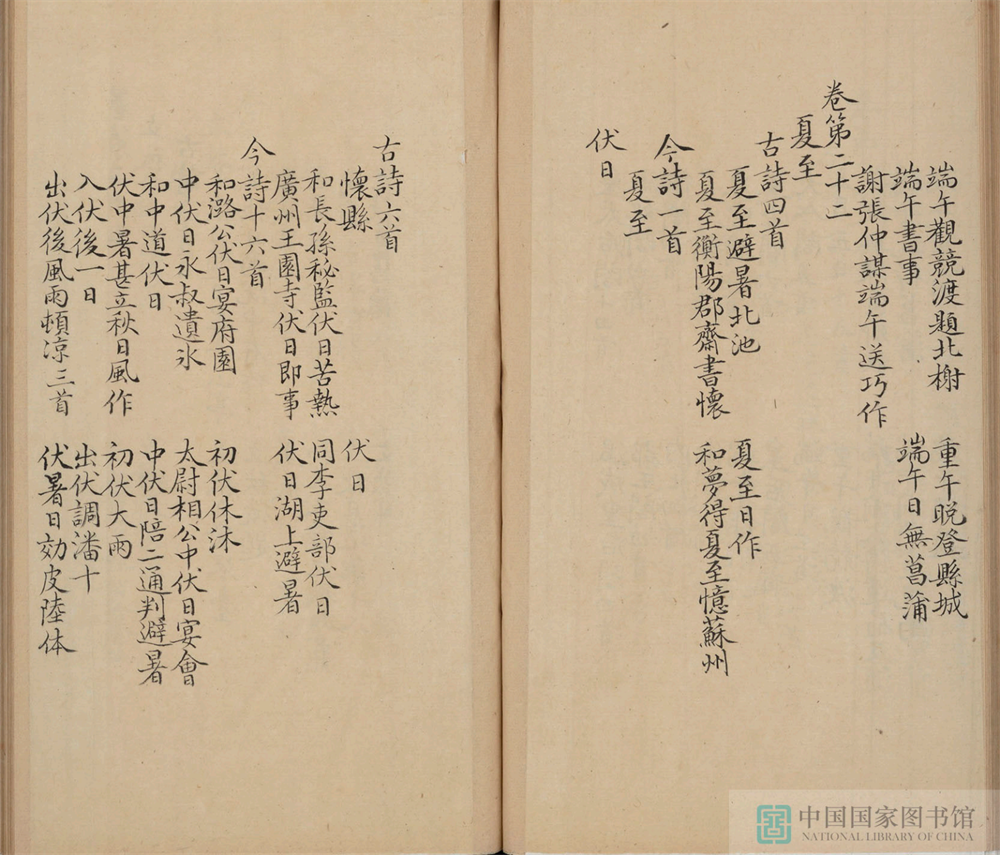 端午觀競渡題北榭　重午晚登縣城
端午書事　端午日無菖蒲
謝張仲謀端午送巧作
卷第二十二
夏至
古詩四首
夏至避暑北池　夏至日作
夏至衡陽郡齋書懷　和夢得夏至憶蘇州
今詩一首
夏至
伏日
古詩六首
懷縣　伏日
和長孫秘監伏日苦熱　同李吏部伏日
廣州王園寺伏日即事　伏日湖上避暑
今詩十六首
和潞公伏日宴府園　初伏休沐
中伏日永叔遺冰　太尉相公中伏日宴會
和中道伏日　中伏日陪二通判避暑
伏中暑甚立秋日風作　初伏大雨
入伏後一日　出伏調潘十
出伏後風雨頓涼三首　伏暑日効皮陸体
中国国家图书馆
NATIONAL LIBRARY OF CHINA